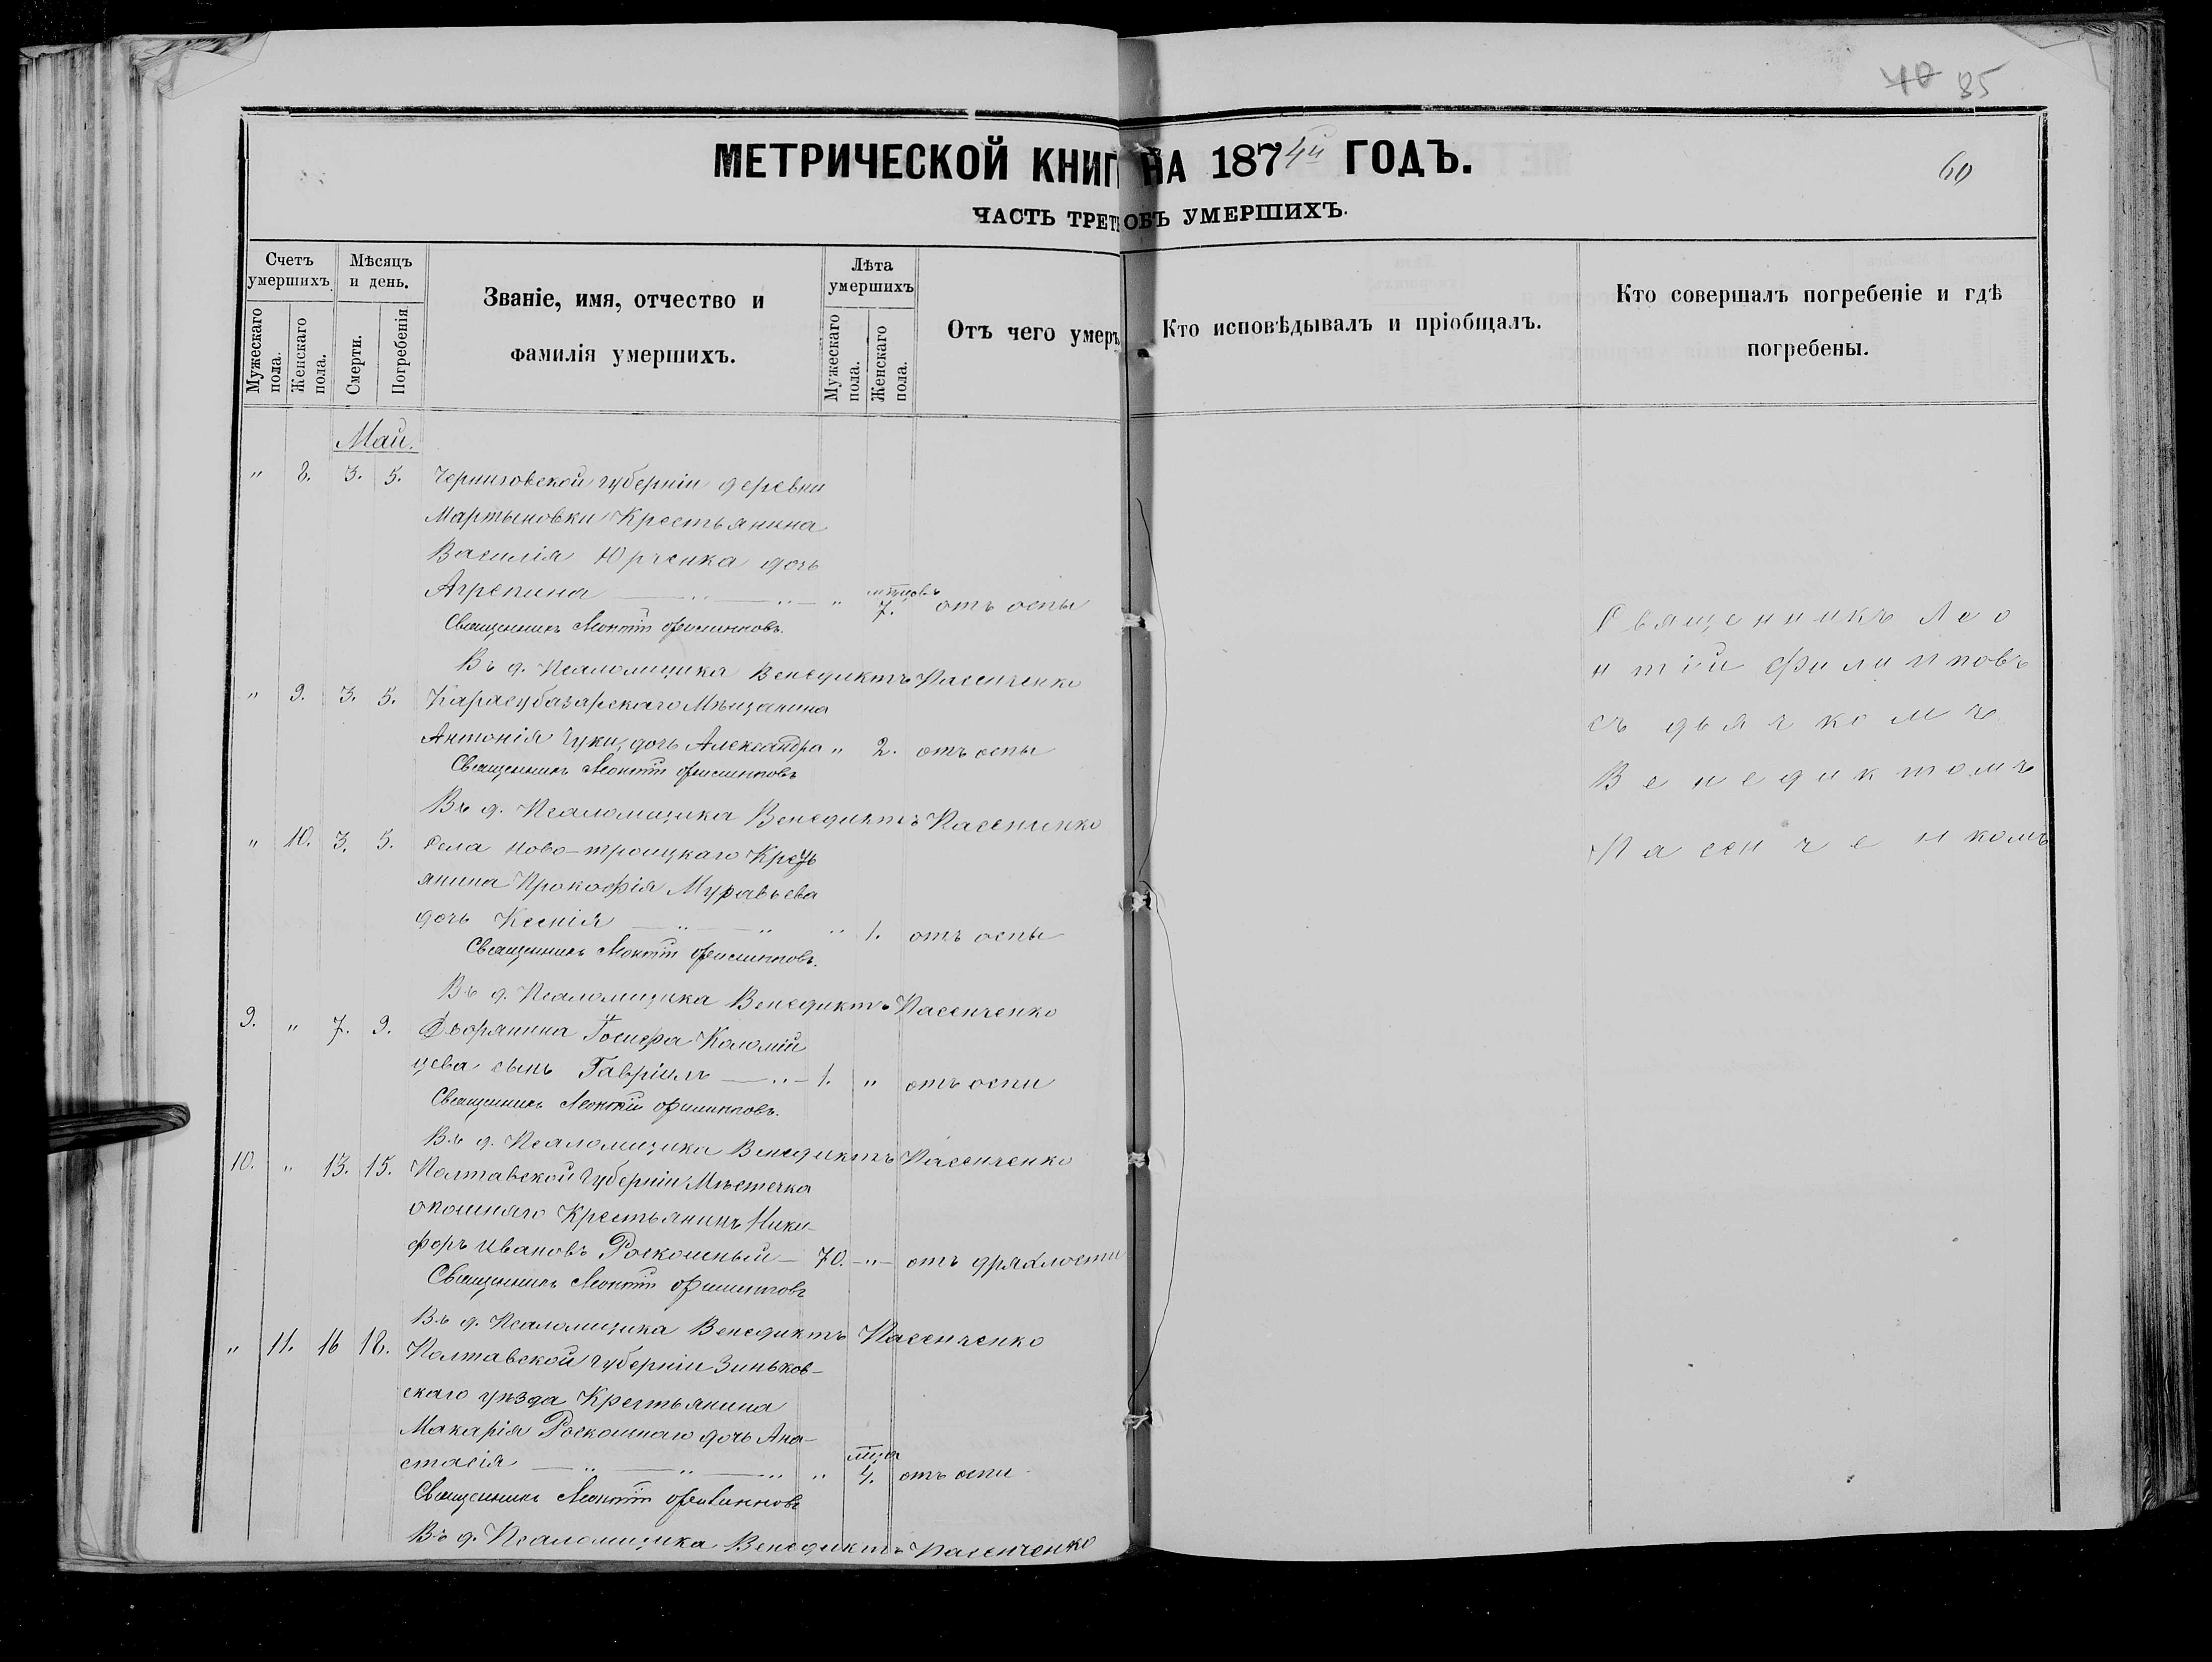 40 85
МЕТРИЧЕСКОЙ КНИГ НА 1874й ГОДЪ.
60
ЧАСТЬ ТРЕТ ОБЪ УМЕРШИХЪ.
Счетъ умершихъ.
Мѣсяцъ и день.
Званіе, имя, отчество и фамилія умершихъ.
Лѣта умершихъ
Отъ чего умеръ
Кто исповѣдывалъ и пріобщалъ.
Кто совершалъ погребеніе и гдѣ погребены.
Мужескаго пола.
Женскаго пола.
Смерти.
Погребенія.
Мужескаго пола.
Женскаго пола.
Май.
" 8. 3. 5. Черниговской губерніи деревни
Мартыновки Крестьянина
Василія Юрченка дочь
Агрепина " мѣсяцовъ 7. отъ оспы
Священникъ Леонтій Филипповъ.
Въ д. Псаломщика Венедиктъ Пасенченко
" 9. 3. 5. Карасубазарскаго Мѣщанина
Антонія Чуки, дочь Александра " 2. отъ оспы
Священникъ Леонтій Филипповъ
Въ д. Псаломщика Венедиктъ Пасенченко
" 10. 3. 5. Села Ново-троицкаго Кресть
янина Прокофія Муравьева
дочь Ксенія " 1. отъ оспы
Священникъ Леонтій Филипповъ.
Въ д. Псаломщика Венедиктъ Пасенченко
9. " 7. 9. Дворянина Іосифа Коломій
цева сынъ Гавріилъ 1. " отъ оспи
Священникъ Леонтій Филипповъ.
Въ д. Псаломщика Венедиктъ Пасенченко
10. " 13. 15. Полтавской Губерніи Мѣстечка
опошняго Крестьянинъ Ники-
форъ Ивановъ Роскошный 70. " отъ дряхлости
Священникъ Леонтій Филипповъ
Въ д. Псаломщика Венедиктъ Пасенченко
" 11. 16 18. Полтавской губерніи Зиньков-
скаго уѣзда Крестьянина
Макарія Роскошнаго дочь Ана-
стасія " 4. отъ оспи
Священникъ Леонтій Филипповъ
Въ д. Псаломщика Венедиктъ Пасенченко
Священникъ Лео
нтій Филипповъ
съ дьячкомъ
Венедиктомъ
Пасенченкомъ